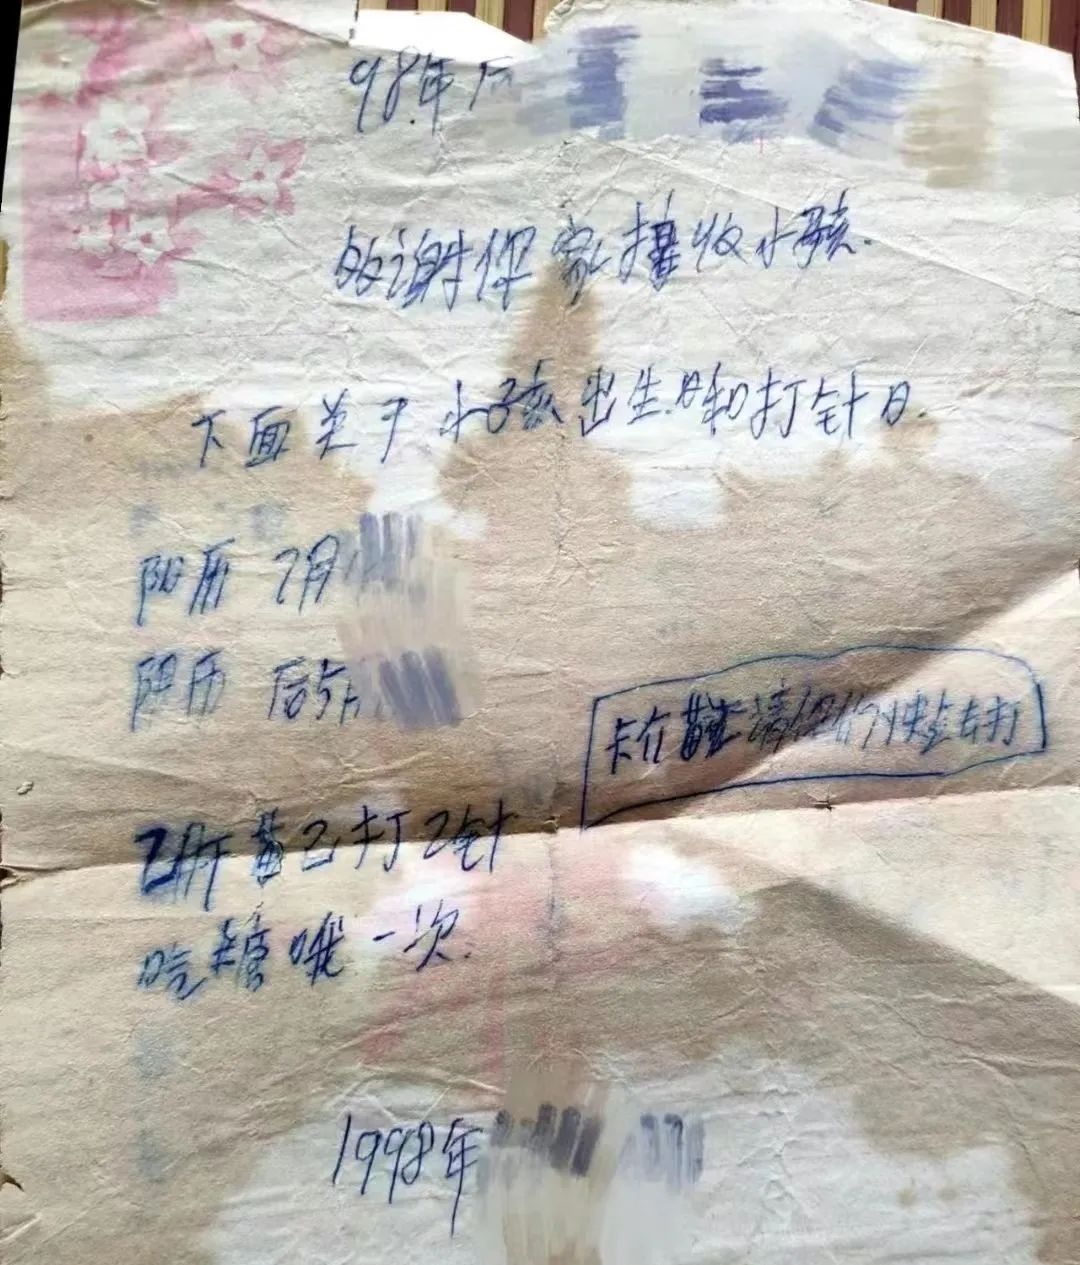 98年后
的谢你家接收小孩.
下面关于小孩出生日和打针日.
阳历 7月
阴历 后5月
卡介苗 请你们快些去打
乙肝苗已打2针
吃糖哦一次.
1998年